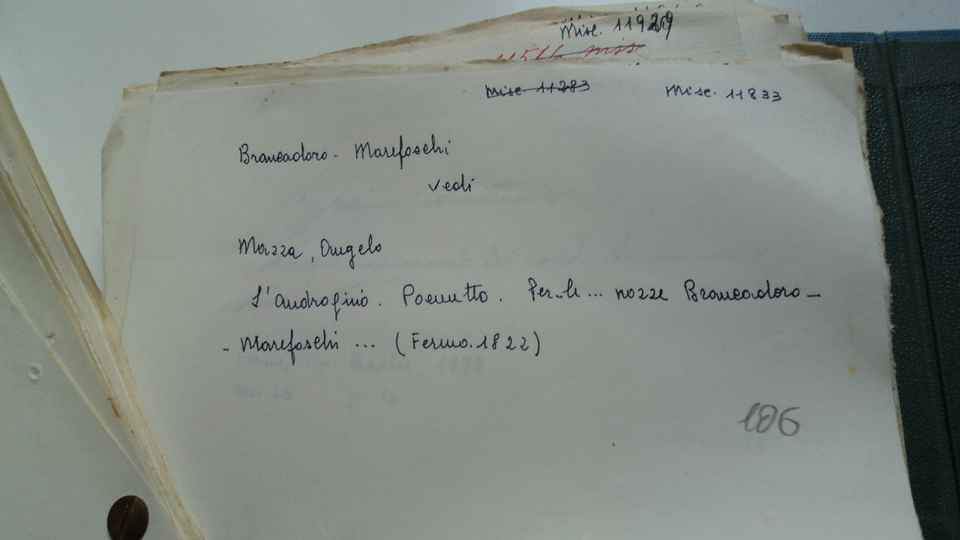 Misc. 11929
11514 mis
Misc 11283 Misc. 11833
Brancadoro - Marefoschi
vedi
Mazza, Angelo
L'Androgino. Poemetto. Per le ... nozze Brancadoro -
- Marefoschi ... (Fermo. 1822)
106